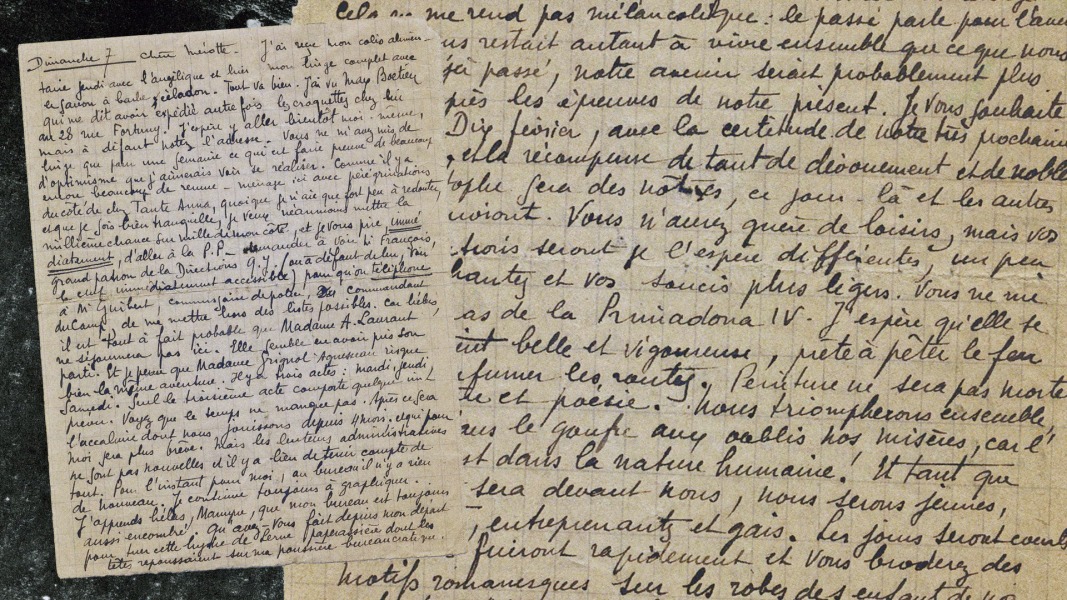 Dimanche 7 chère Meiotte. J'ai reçu mon colis alimen-
taire jeudi avec l'angélique et hier mon linge complet avec
savon à barbe Tout va bien. J'ai vu Max
qui me dit avoir expédié autrefois les croquettes chez lui
au 28 rue Fortuny. J'espère y aller bientôt moi-même,
mais à défaut notez l'adresse. Vous ne m'avez mis de
linge que pour une semaine ce qui est faire preuve de beaucoup
d'optimisme que j'aimerais voir se réaliser. Comme il y a
encore beaucoup de remue-ménage ici avec pérégrinations
du côté de chez Tante Anna, quoique je n'aie que fort peu à redouter,
et que je sois bien tranquille, je veux néanmoins mettre la
millième chance sur mille de mon côté, et je vous prie, immé
diatement, d'aller à la P.P. demander à voir François,
grand patron de la Direction (ou à défaut de lui,
le chef immédiatement accessible) pour qu'on téléphone
à Mr Guibert, commissaire de police, commandant
du Camp, de me mettre hors des listes possibles. Car hélas
il est tout à fait probable que Madame A. Laurant
ne séjournera pas ici. Elle semble en avoir pris son
parti. Et je pense que Madame risque
bien la même aventure. Il y a trois actes : mardi, jeudi,
Samedi. Seul le troisième acte comporte quelque
preuve. Voyez que le temps ne manque pas. Après ce sera
l'accalmie dont nous jouissons depuis 4 mois. et qui pour
moi sera plus brève. Mais les lenteurs administratives
ne sont pas nouvelles et il y a lieu de tenir compte de
tout. Pour l'instant pour moi, au bureau il n'y a rien
de nouveau. Je continue toujours à graphiquer.
J'apprends hélas, que mon bureau est toujours
aussi encombré. Qu'avez-vous fait depuis mon départ
pour tuer cette hydre de Lerne paperassière dont les
têtes repoussaient sur ma poussière bureaucratique.
Cela me rend pas mélancolique : le passé parle pour l'aven
us restait autant à vivre ensemble que ce que nous
jà passé, notre avenir serait probablement plus
près les épreuves de notre présent. Je vous souhaite
Dix février, avec la certitude de notre très prochain
, et la récompense de tant de dévouement et de noble
ophe sera des nôtres, ce jour-là et les autres
uivront. Vous n'aurez guère de loisirs, mais vos
seront je l'espère différentes, un peu
et vos soucis plus légers. Vous ne me
as de la Primadona IV. J'espère qu'elle se
ent belle et vigoureuse, prête à pêter le feu
fumer les routes. Peinture ne sera pas morte
te et poésie. Nous triompherons ensemble,
le gouffre aux oublis nos misères, car l'
st dans la nature humaine ! Et tant que
sera devant nous, nous serons jeunes,
, entreprenants et gais. Les jours seront courts
fuiront rapidement et vous broderez des
motifs romanesques sur les robes des enfants de